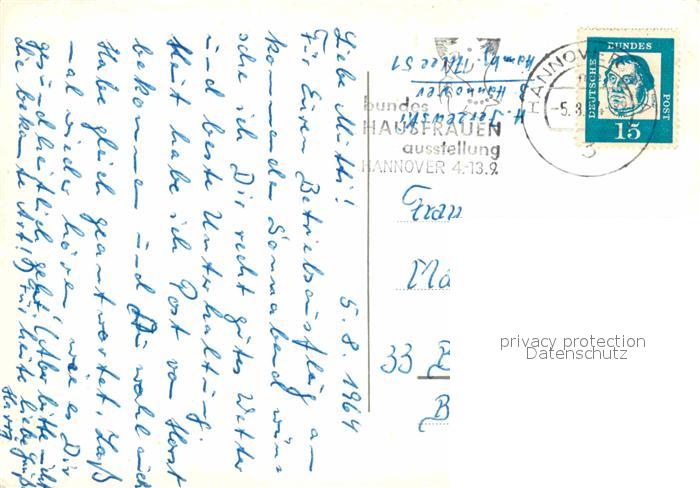 Liebe Mutti! 5.8.1964
Für Euren Betriebsausflug am
kommenden Sonnabend wün-
sche ich Dir recht gutes Wetter
und beste Unterhaltung.
Heut habe ich Post von Horst
bekommen und Du wohl auch.
Habe gleich geantwortet. Laß
mal wieder hören wie es Dir
gesundheitlich geht! (Aber bitte nicht
die bekannte Art!) Für heute liebe Grüße
H.
Hannover
Hamb. Allee 51
bundes
HAUSFRAUEN
ausstellung
HANNOVER 4.-13.9.
HANNOVER
-5.8.
3
DEUTSCHE BUNDES POST
15
Frau
Ma
33 B
B
privacy protection
Datenschutz